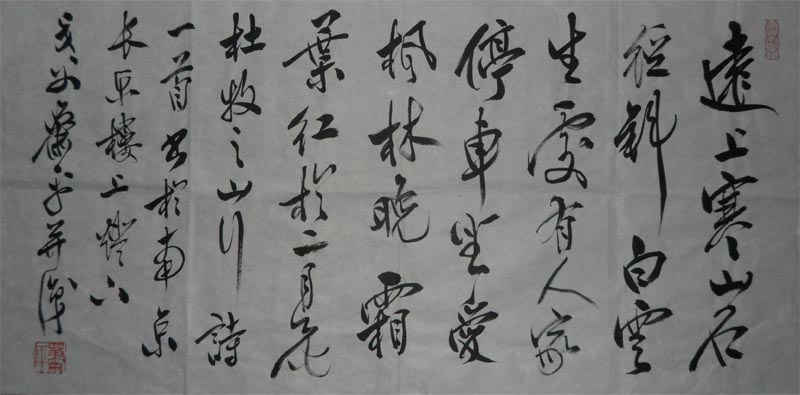 遠上寒山石
徑斜白雲
生處有人家
停車坐愛
楓林晚霜
葉紅於二月花
杜牧之山行詩
一首書於南京
长乐樓上燈下